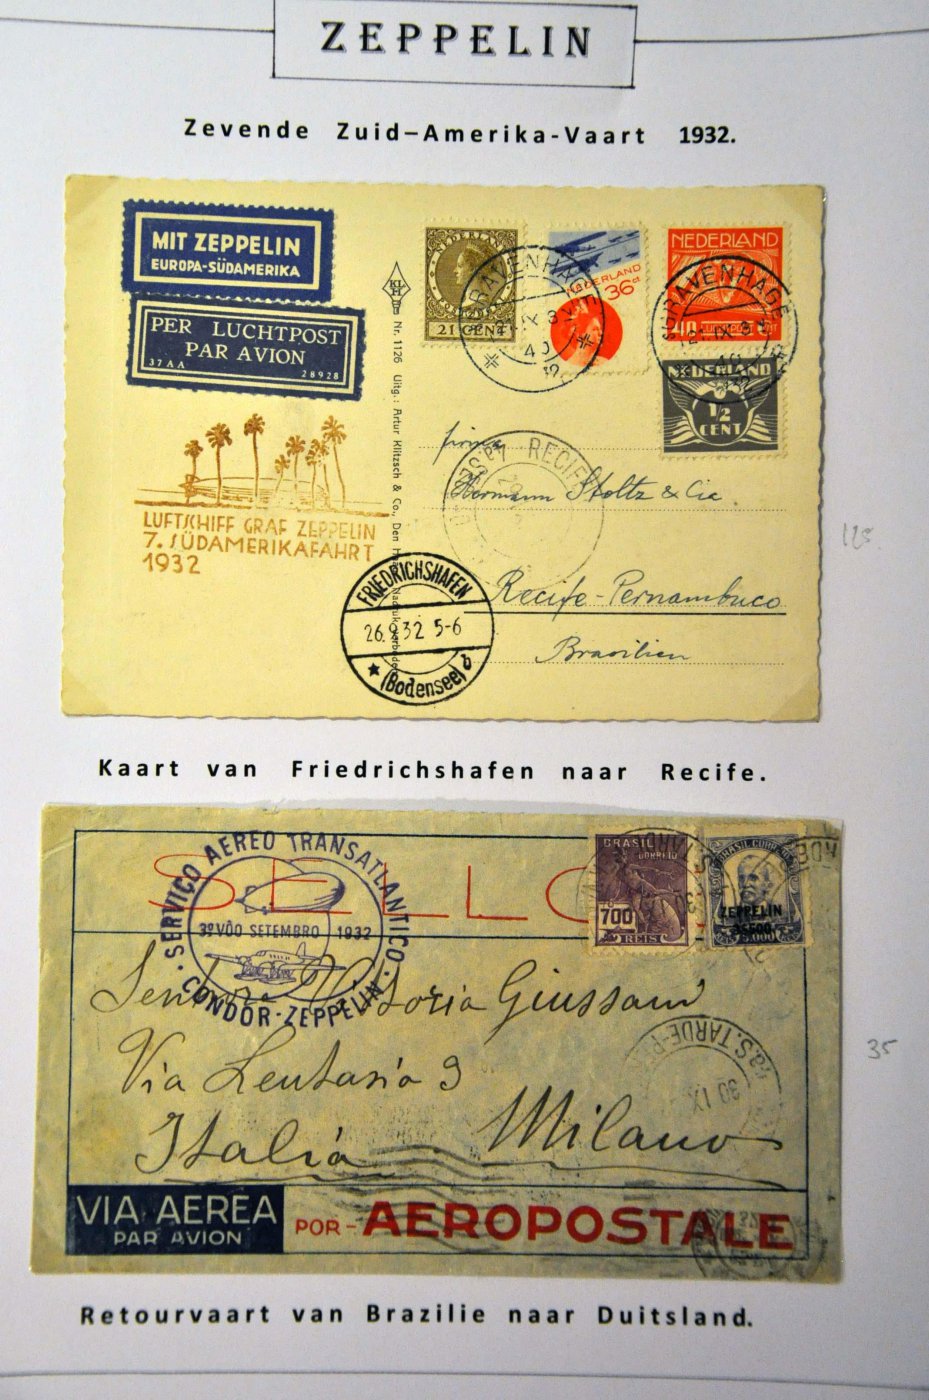 ZEPPELIN
Zevende Zuid-Amerika-Vaart 1932.
MIT ZEPPELIN
EUROPA-SÜDAMERIKA
PER LUCHTPOST
PAR AVION
37AA 28928
NEDERLAND
21 CENT
NEDERLAND
36 ct
NEDERLAND
40
NEDERLAND
1/2
CENT
'S GRAVENHAGE
'S GRAVENHAGE
Nr. 1126 Uitg.: Artur Klitzsch & Co., Den
RECIFE
firma
Hermann Stoltz & Cia
Recife-Pernambuco
Brasilien
LUFTSCHIFF GRAF ZEPPELIN
7. SÜDAMERIKAFAHRT
1932
FRIEDRICHSHAFEN
26.9.32 5-6
(Bodensee) b
125
Kaart van Friedrichshafen naar Recife.
SELLO
SERVIÇO AEREO TRANSATLANTICO
3º VÔO SETEMBRO 1932
CONDOR-ZEPPELIN
BRASIL
CORREIO
700
REIS
BRASIL CORREIO
ZEPPELIN
3$500
5.000
Via
3
Italiá Milano
30 IX
35
VIA AEREA
PAR AVION
POR - AEROPOSTALE
Retourvaart van Brazilie naar Duitsland.